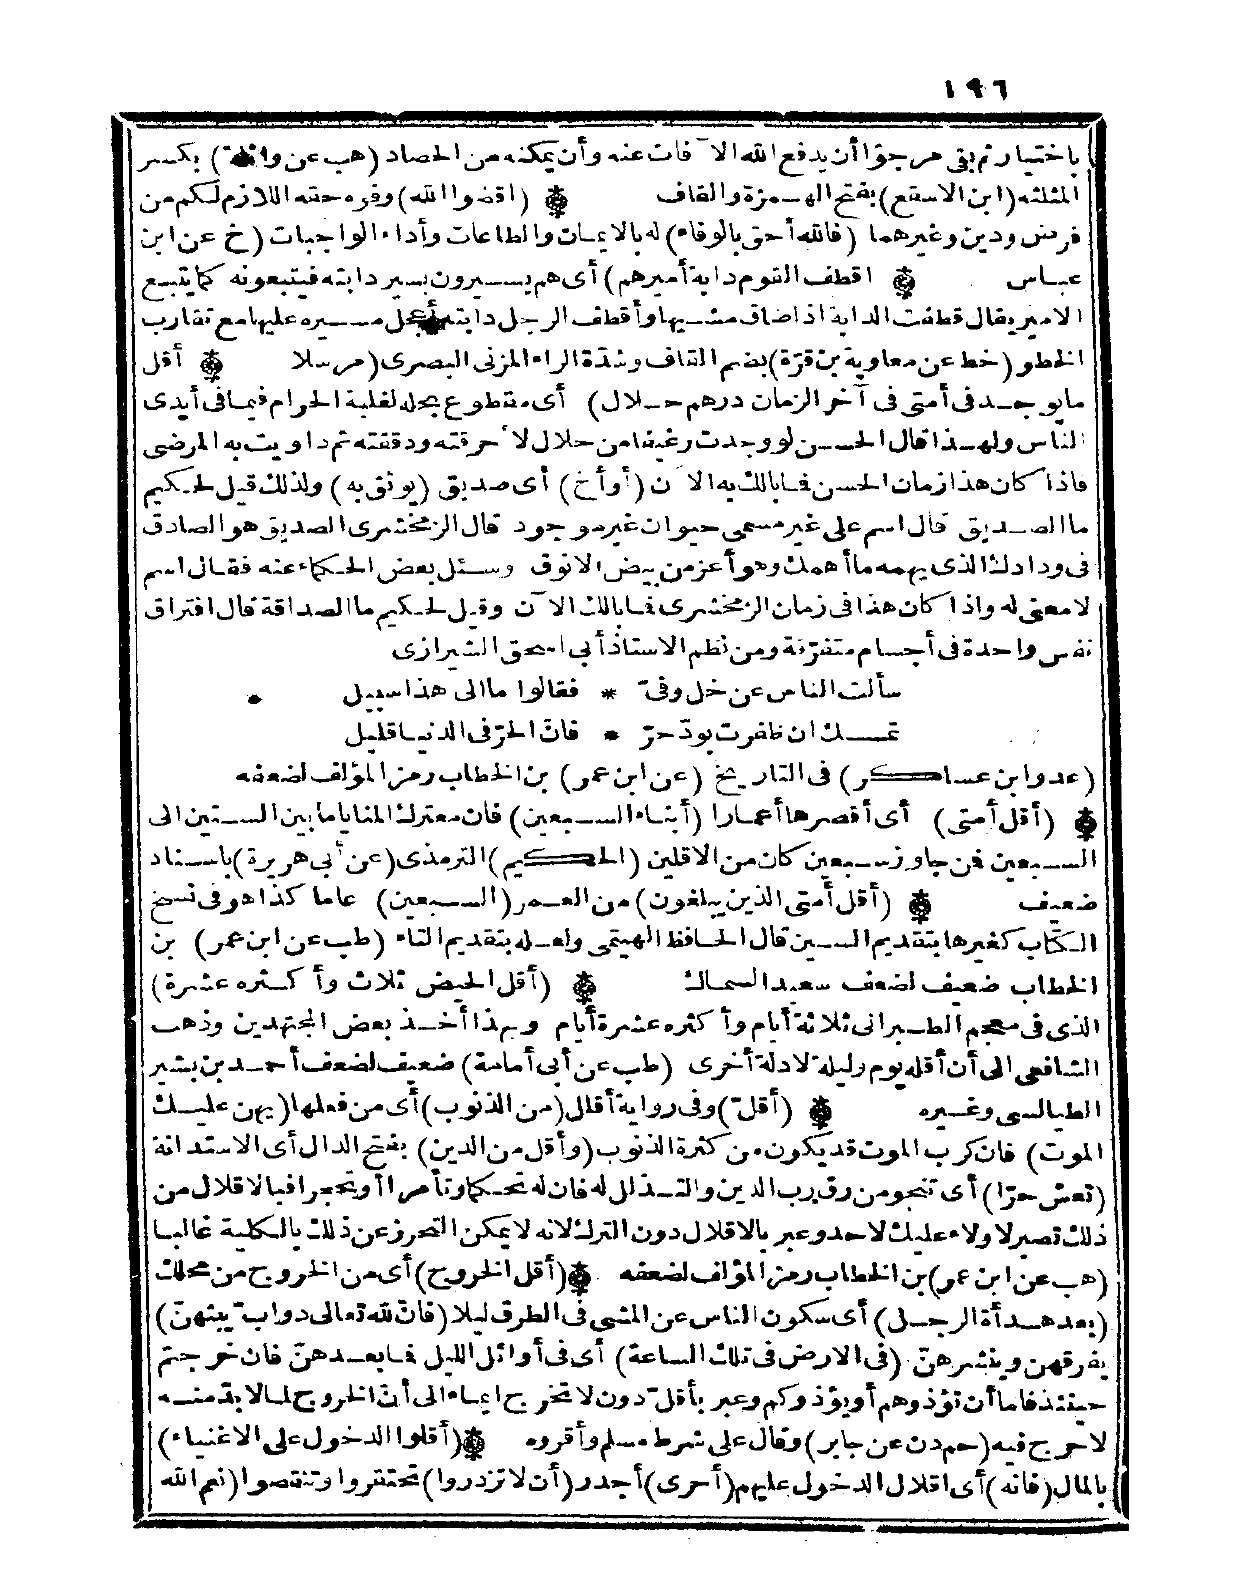 ١٩٦
باختيار ثم بقي مرجوّا أن يدفع الله الآفات عنه وأن يمكنه من الحصاد (هب عن واثلة) بكسر
المثلثه (ابن الاسقع) بفتح الهمزة والقاف ۞ (اقضوا الله) وفوه حقه اللازم لكم من
فرض ودين وغيرهما (فالله أحق بالوفاء) له بالايمان والطاعات وأداء الواجبات (خ عن ابن
عباس ۞ اقطف القوم دابة أميرهم) أى هم يسيرون بسير دابته فيتبعونه كما يتبع
الامير يقال قطفت الدابة اذا ضاق مشيها وأقطف الرجل دابته أعجل مسيره عليها مع تقارب
الخطو (خط عن معاوية بن قرّة) بضم القاف وشدّة الراء المزنى البصرى (مرسلا ۞ أقل
ما يوجد فى أمتى فى آخر الزمان درهم حلال) أى مقطوع بحله لغلبة الحرام فيما فى أيدى
الناس ولهذا قال الحسن لو وجدت رغيفا من حلال لأحرقته ودققته ثم داويت به المرضى
فاذا كان هذا زمان الحسن فما بالك به الآن (أو أخ) أى صديق (يوثق به) ولذلك قيل لحكيم
ما الصديق قال اسم على غير مسمى حيوان غير موجود قال الزمخشرى الصديق هو الصادق
فى ودادك الذى يهمه ما أهمك وهو أعز من بيض الانوق وسئل بعض الحكماء عنه فقال اسم
لا معنى له واذا كان هذا فى زمان الزمخشرى فما بالك الآن وقيل لحكيم ما الصداقة قال افتراق
نفس واحدة فى أجسام متفرّقة ومن نظم الاستاذ أبى اسحق الشيرازى
سألت الناس عن خل وفىّ * فقالوا ما الى هذا سبيل *
تمسك ان ظفرت بودّ حرّ * فانّ الحرّ فى الدنيا قليل
(عد وابن عساكر) فى التاريخ (عن ابن عمر) بن الخطاب رمز المؤلف لضعفه
۞ (أقل أمتى) أى أقصرها أعمارا (أبناء السبعين) فان معترك المنايا ما بين الستين الى
السبعين فمن جاوز سبعين كان من الاقلين (الحكيم) الترمذى (عن أبى هريرة) باسناد
ضعيف ۞ (أقل أمتى الذين يبلغون) من العمر (السبعين) عاما كذا هو فى نسخ
الكتاب كغيرها بتقديم السين قال الحافظ الهيتمى ولعله بتقديم التاء (طب عن ابن عمر) بن
الخطاب ضعيف لضعف سعيد السماك ۞ (أقل الحيض ثلاث وأكثره عشرة)
الذى فى معجم الطبرانى ثلاثة أيام وأكثره عشرة أيام وبهذا أخذ بعض المجتهدين وذهب
الشافعى الى أن أقله يوم وليلة لادلة أخرى (طب عن أبى أمامة) ضعيف لضعف أحمد بن بشير
الطيالسى وغيره ۞ (أقلّ) وفى رواية أقال (من الذنوب) أى من فعلها (يهن عليك
الموت) فان كرب الموت قد يكون من كثرة الذنوب (وأقل من الدين) بفتح الدال أى الاستدانة
(تعش حرّا) أى تنجو من رق رب الدين والتذلل له فان له تحكما وتأمرا أو تحجرا فبالاقلال من
ذلك تصير لا ولاء عليك لاحد وعبر بالاقلال دون الترك لانه لا يمكن التحرز عن ذلك بالكلية غالبا
(هب عن ابن عمر) بن الخطاب رمز المؤلف لضعفه ۞ (أقل الخروج) أى من الخروج من محلك
(بعد هدأة الرجل) أى سكون الناس عن المشى فى الطرق ليلا (فان لله تعالى دوابّ يبثهنّ)
يفرقهن وينشرهنّ (فى الارض فى تلك الساعة) أى فى أوائل الليل فما بعدهنّ فان خرجتم
حينئذ فاما أن تؤذوهم أو يؤذوكم وعبر بأقلّ دون لا تخرج ايماء الى أنّ الخروج لما لا بدّ منه
لا حرج فيه (حم د ن عن جابر) وقال على شرط مسلم وأقروه ۞ (أقلوا الدخول على الاغنياء)
بالمال (فانه) أى اقلال الدخول عليهم (أحرى) أجدر (أن لا تزدروا) تحتقروا وتنتقصوا (نعم الله